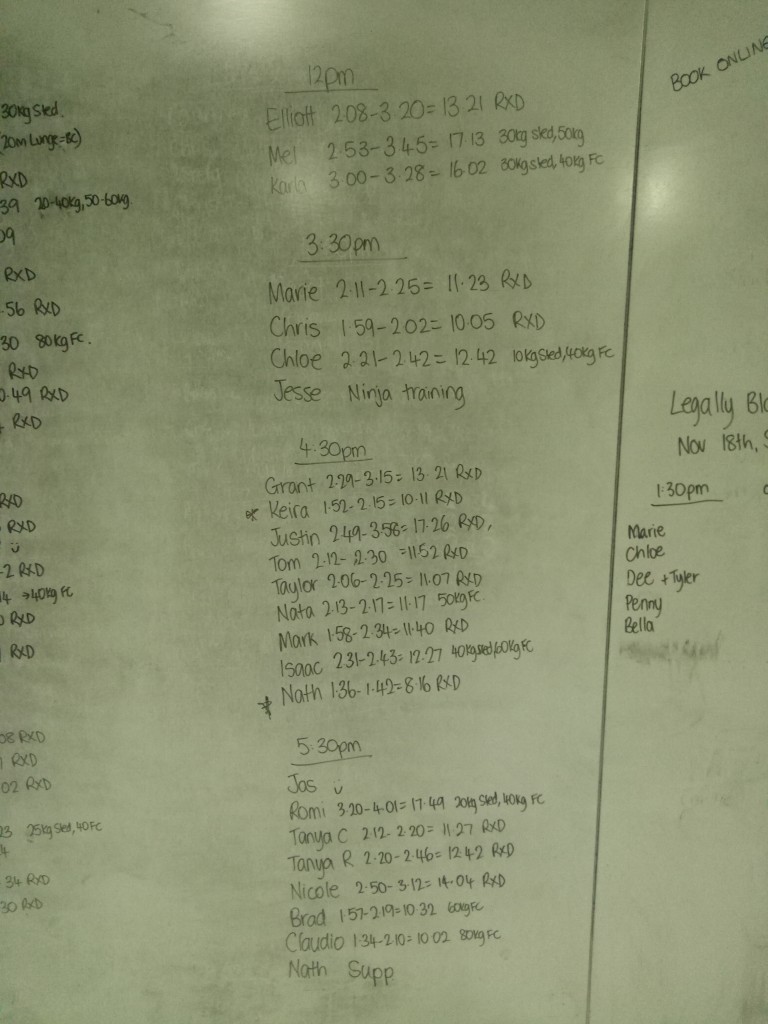 30kg Sled.
(20m Lunge=BC)
RXD
39 20-40kg, 50-60kg
09
RXD
.56 RXD
30 80kg FC.
RXD
0.49 RXD
RXD
RXD
RXD
-2 RXD
14 →40kg FC
RXD
RXD
08 RXD
1 RXD
02 RXD
23 25kg Sled, 40 FC
4
.34 RXD
30 RXD
12pm
Elliott 2.08-3.20= 13.21 RXD
Mel 2.53-3.45= 17.13 30kg sled, 50kg
Karla 3.00-3.28= 16.02 30kg sled, 40kg FC
3:30pm
Marie 2.11-2.25= 11.23 RXD
Chris 1.59-2.02= 10.05 RXD
Chloe 2.21-2.42= 12.42 10kg Sled, 40kg FC
Jesse Ninja training
4:30pm
Grant 2.29-3.15= 13.21 RXD
* Keira 1.52-2.15= 10.11 RXD
Justin 2.49-3.58= 17.26 RXD,
Tom 2.12-2.30 =11.52 RXD
Taylor 2.06-2.25= 11.07 RXD
Nata 2.13-2.17= 11.17 50kg FC.
Mark 1.58-2.34= 11.40 RXD
Isaac 2.31-2.43= 12.27 40kg sled, 60kg FC
* Nath 1.36-1.42= 8.16 RXD
5:30pm
Jas
Romi 3.20-4.01= 17.49 20kg Sled, 40kg FC
Tanya C 2.12-2.20= 11.27 RXD
Tanya R 2.20-2.46= 12.42 RXD
Nicole 2.50-3.12= 14.04 RXD
Brad 1.57-2.19= 10.32 60kg FC
Claudio 1.34-2.10= 10.02 80kg FC
Nath Supp
BOOK ONLINE
Legally Blo
Nov 18th, S
1:30pm
Marie
Chloe
Dee + Tyler
Penny
Bella